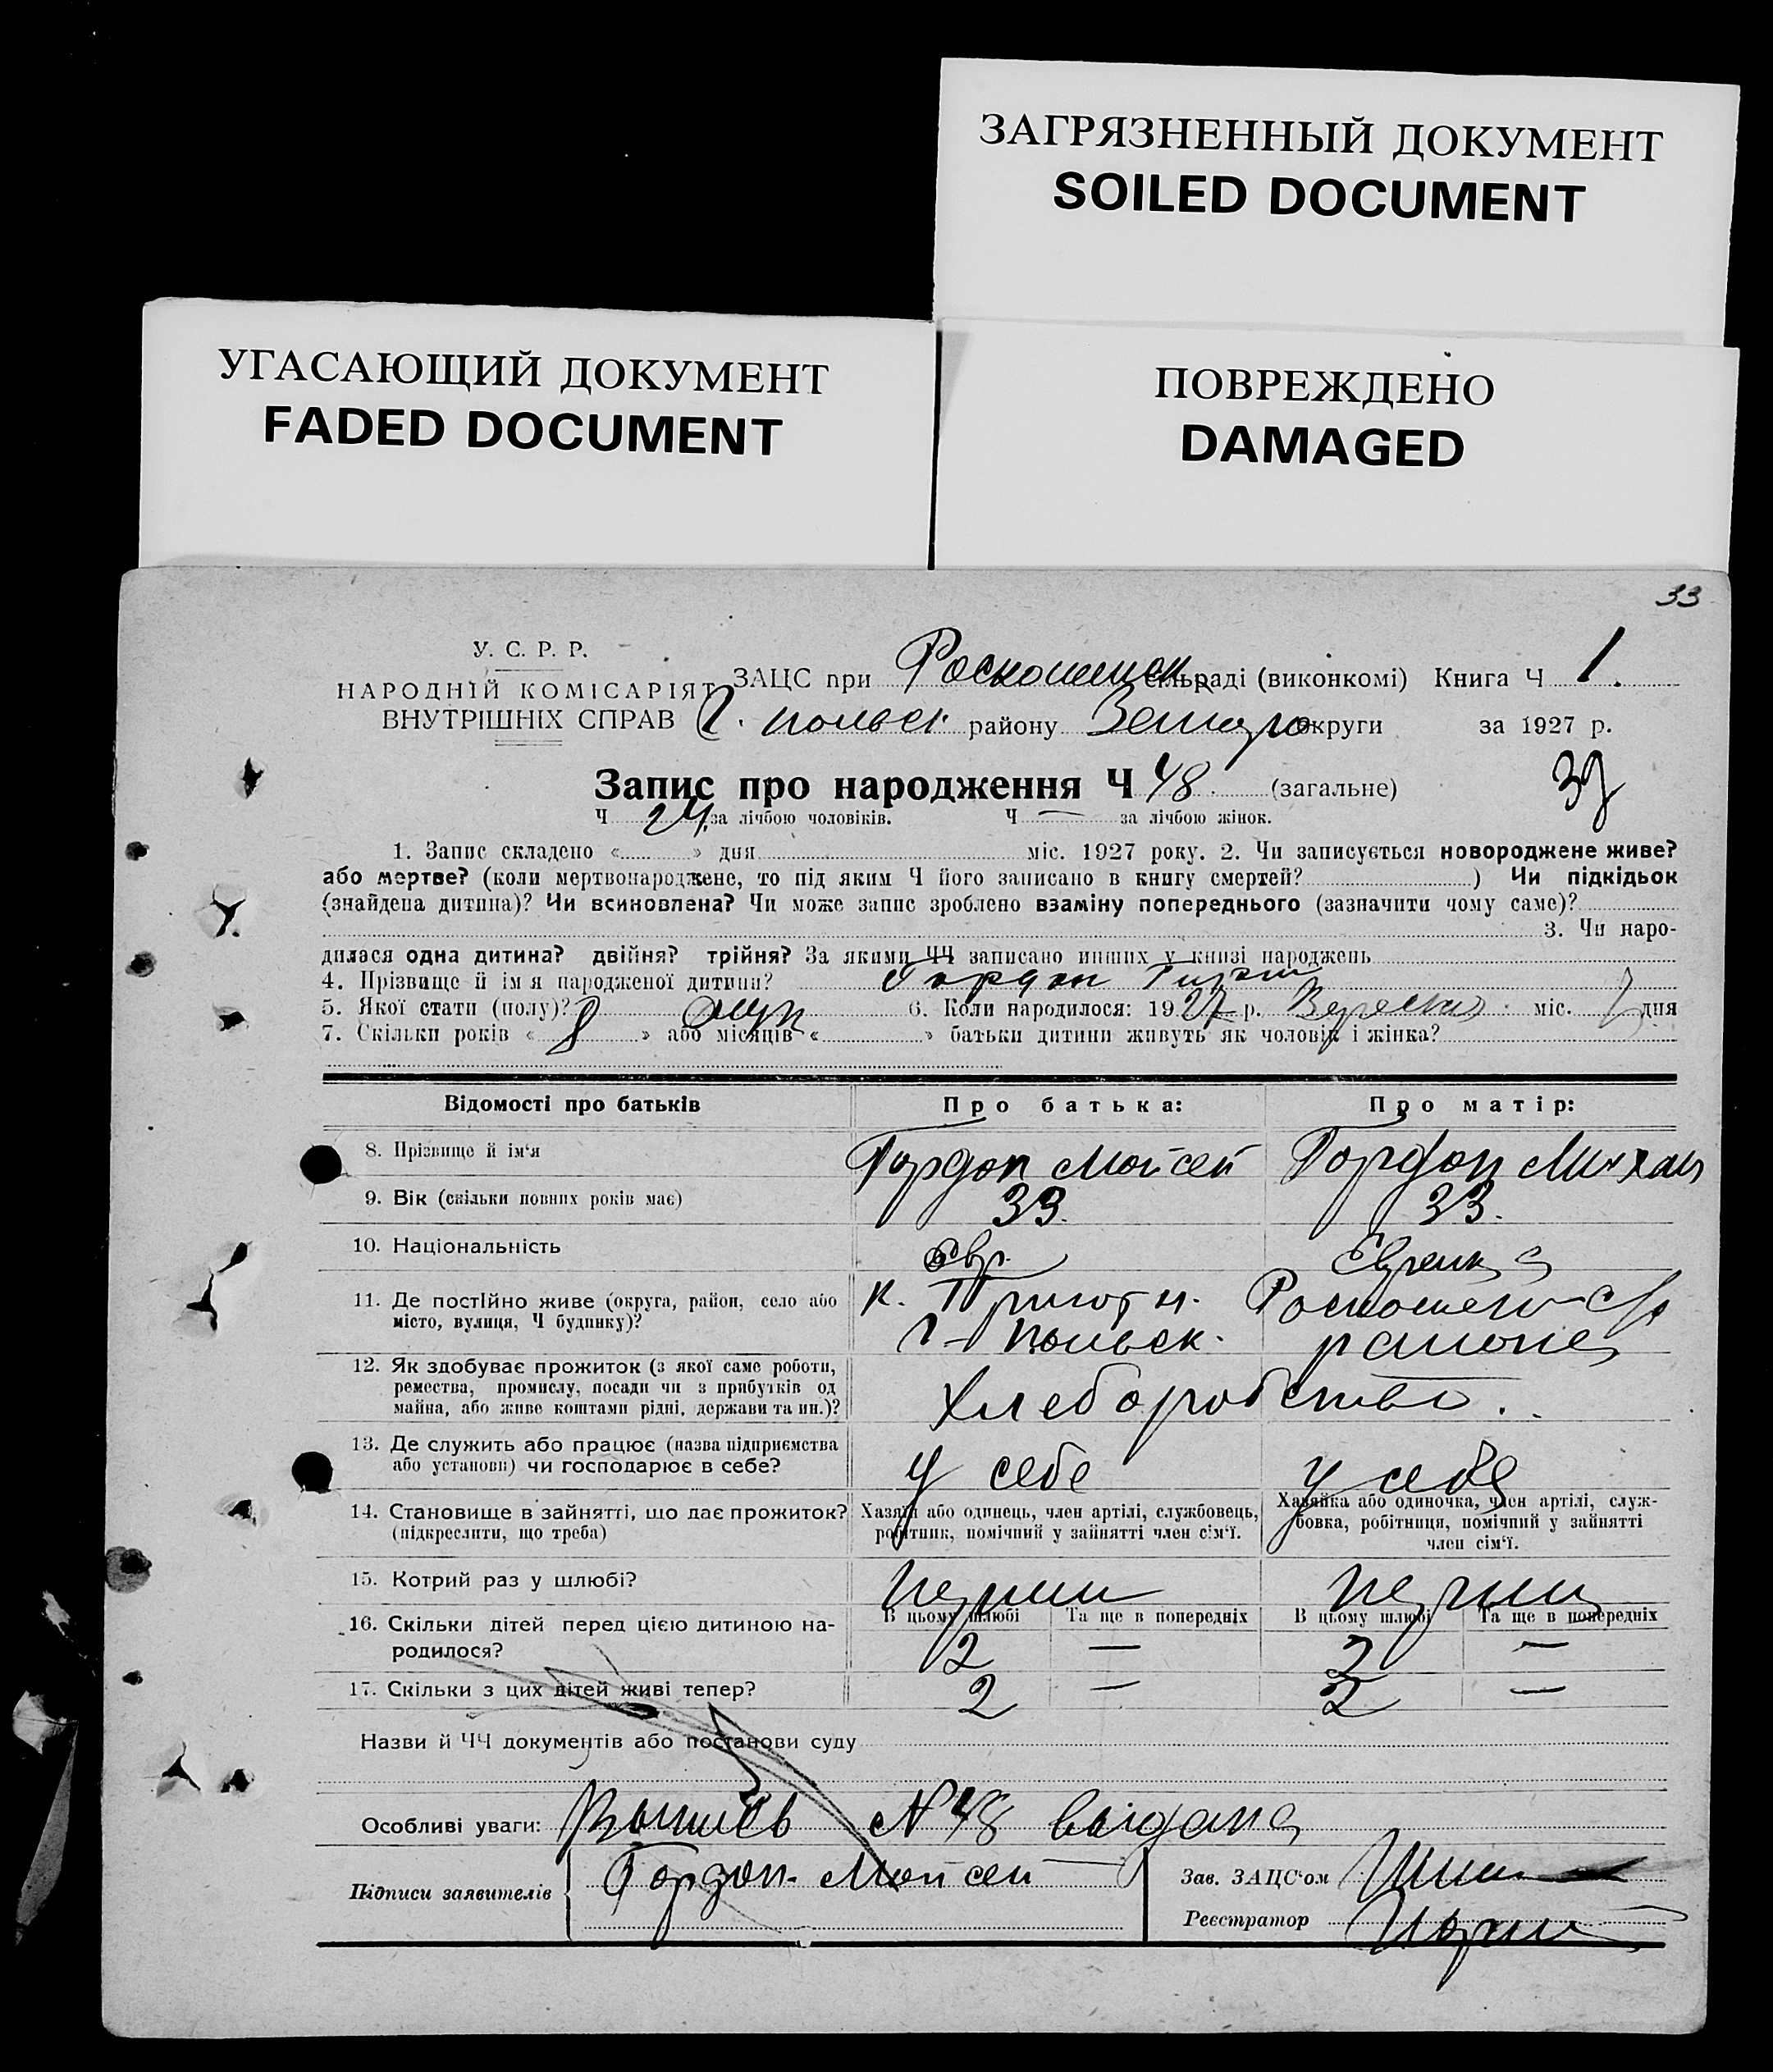 ЗАГРЯЗНЕННЫЙ ДОКУМЕНТ
SOILED DOCUMENT
УГАСАЮЩИЙ ДОКУМЕНТ
FADED DOCUMENT
ПОВРЕЖДЕНО
DAMAGED
33
У. С. Р. Р.
НАРОДНІЙ КОМІСАРІЯТ
ВНУТРІШНІХ СПРАВ
ЗАЦС при сільраді (виконкомі) Книга Ч 1.
польск. району округи за 1927 р.
Запис про народження Ч 48. (загальне)
Ч 24. за лічбою чоловіків. Ч — за лічбою жінок.
1. Запис складено «......» дня міс. 1927 року. 2. Чи записується новороджене живе?
або мертве? (коли мертвонароджене, то під яким Ч його записано в книгу смертей?) Чи підкідьок
(знайдена дитина)? Чи всиновлена? Чи може запис зроблено взаміну попереднього (зазначити чому саме)?
3. Чи наро-
дилася одна дитина? двійня? трійня? За якими ЧЧ записано инших у книзі народжень
4. Прізвище й ім'я народженої дитини? Гордон
5. Якої стати (полу)? муж 6. Коли народилося: 1927 р. Вересня міс. дня
7. Скільки років « 8 » або місяців « » батьки дитини живуть як чоловік і жінка?
Відомості про батьків Про батька: Про матір:
8. Прізвище й ім'я Гордон Мойсей Гордон
9. Вік (скільки повних років має) 33. 33.
10. Національність Евр. Еврейка
11. Де постійно живе (округа, район, село або
місто, вулиця, Ч будинку)? польск. района
12. Як здобуває прожиток (з якої саме роботи,
ремества, промислу, посади чи з прибутків од
майна, або живе коштами рідні, держави та ин.)?
Хлеборобство.
13. Де служить або працює (назва підприємства
або установи) чи господарює в себе? у себе у себе
14. Становище в зайнятті, що дає прожиток?
(підкреслити, що треба)
Хазяїн або одинець, член артілі, службовець,
робітник, помічний у зайнятті член сім'ї.
Хазяйка або одиночка, член артілі, служ-
бовка, робітниця, помічний у зайнятті
член сім'ї.
15. Котрий раз у шлюбі? перши перши
16. Скільки дітей перед цією дитиною на-
родилося?
В цьому шлюбі Та ще в попередніх В цьому шлюбі Та ще в попередніх
2 — 2 —
17. Скільки з цих дітей живі тепер? 2 — 2 —
Назви й ЧЧ документів або постанови суду
Особливі уваги: Выпись № 48 выдана
Підписи заявителів Гордон Мойсей
Зав. ЗАЦС'ом
Реєстратор